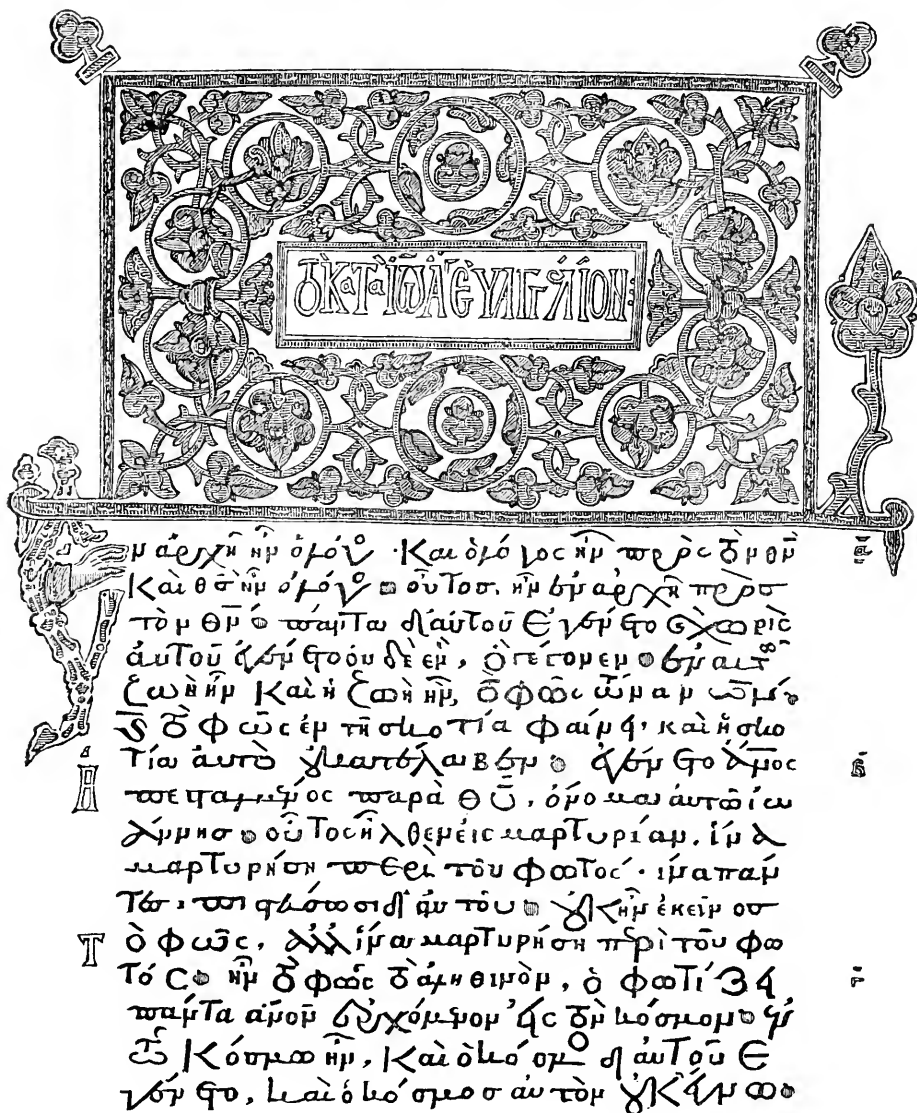 τὸ κατὰ ἰω̅α̅ εὐαγγέλιον
Ἐν ἀρχῆ ἦν ὁ λόγος · Καὶ ὁ λόγος ἦν πρὸς τὸν θ̅ν̅ α̅
Καὶ θ̅ς̅ ἦν ὁ λόγος οὗτος ἦν ἐν ἀρχῆ πρὸς
τὸν θ̅ν̅ πάντα δι' αὐτοῦ ἐγένετο καὶ χωρὶς
αὐτοῦ ἐγένετο οὐδὲ ἓν, ὃ γέγονεν ἐν αὐτῶ
ζωὴ ἦν Καὶ ἡ ζωὴ ἦν, τὸ φῶς τῶν α̅ν̅ω̅ν̅
καὶ τὸ φῶς ἐν τῆ σκοτία φαίνει· καὶ ἡ σκο
τία αὐτὸ οὐ κατέλαβεν ἐγένετο α̅ν̅ο̅ς̅ β̅
Ἀπεσταλμένος παρὰ θ̅υ̅, ὄνομα αὐτῶ ἰω
άννης οὗτος ἦλθεν εἰς μαρτυρίαν, ἵνα
μαρτυρήση περὶ τοῦ φωτός · ἵνα πάν
τες πιστεύσωσι δι' αὐτοῦ οὐκ ἦν ἐκεῖνος
Τὸ φῶς, ἀλλ' ἵνα μαρτυρήση περὶ τοῦ φω
τός ἦν τὸ φῶς τὸ ἀληθινὸν, ὃ φωτίζει γ̅
πάντα α̅ν̅ο̅ν̅ ἐρχόμενον εἰς τὸν κόσμον ἐν
τῶ Κόσμω ἦν, Καὶ ὁ κόσμος δι' αὐτοῦ ἐ
γένετο, καὶ ὁ κόσμος αὐτὸν οὐκ ἔγνω